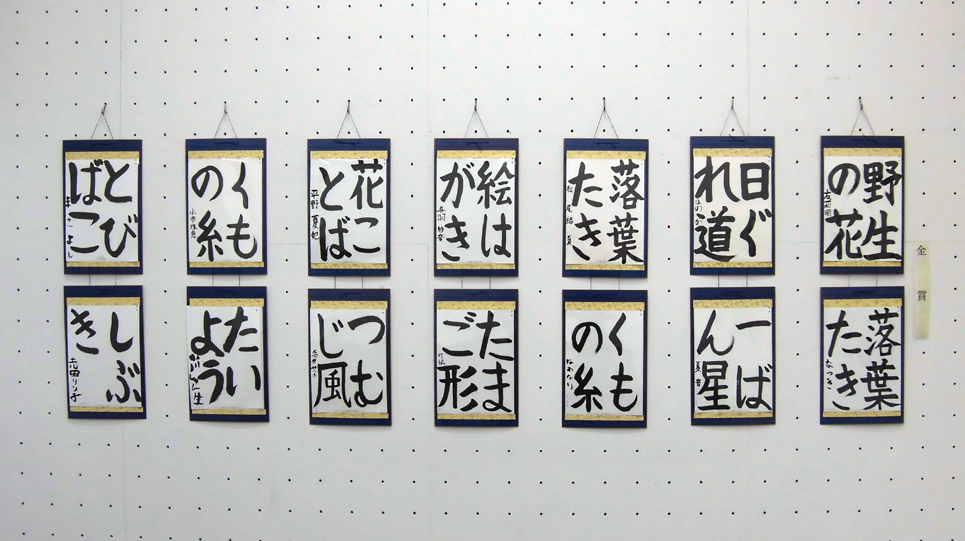 野生
の花
日ぐ
れ道
落葉
たき
絵は
がき
花こ
とば
平野夏妃
くも
の糸
とび
ばこ
落葉
たき
なつき
一ば
ん星
くも
の糸
たま
ご形
つむ
じ風
たい
よう
しぶ
き
金賞